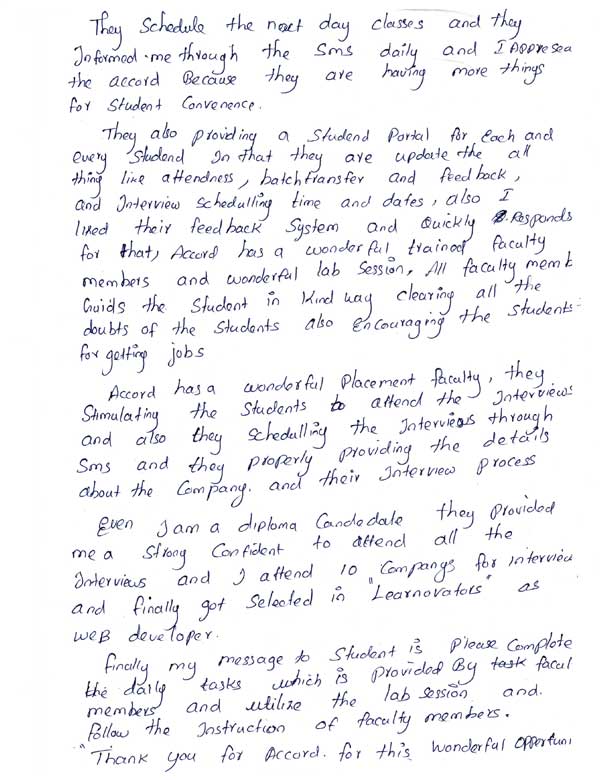 They Schedule the next day classes and they
Informed me through the Sms daily and I Appresea
the accord Because they are having more things
for Student Convenence.
They also providing a Studend Portal for Each and
every Studend In that they are update the all
thing like attendness, batchtransfer and feedback,
and Interview schedulling time and dates, also I
liked their feedback System and Quickly Responds
for that, Accord has a wonderful trained faculty
members and wonderful lab Session, All faculty memb
Guids the Student in Kind way clearing all the
doubts of the Students also Encouraging the Students
for getting jobs
Accord has a wonderful Placement faculty, they
Stimulating the Students to attend the Interviews
and also they schedulling the Interviews through
Sms and they properly providing the details
about the Company. and their Interview process
Even I am a diploma Candedate they provided
me a Strong Confident to attend all the
Interviews and I attend 10 Companys for interview
and finally got Selected in "Learnovators" as
WEB developer.
Finally my message to Student is Please Complete
the daily tasks which is Provided By task facul
members and utilize the lab session and.
Follow the Instruction of faculty members.
"Thank you for Accord. for this Wonderful opportuni